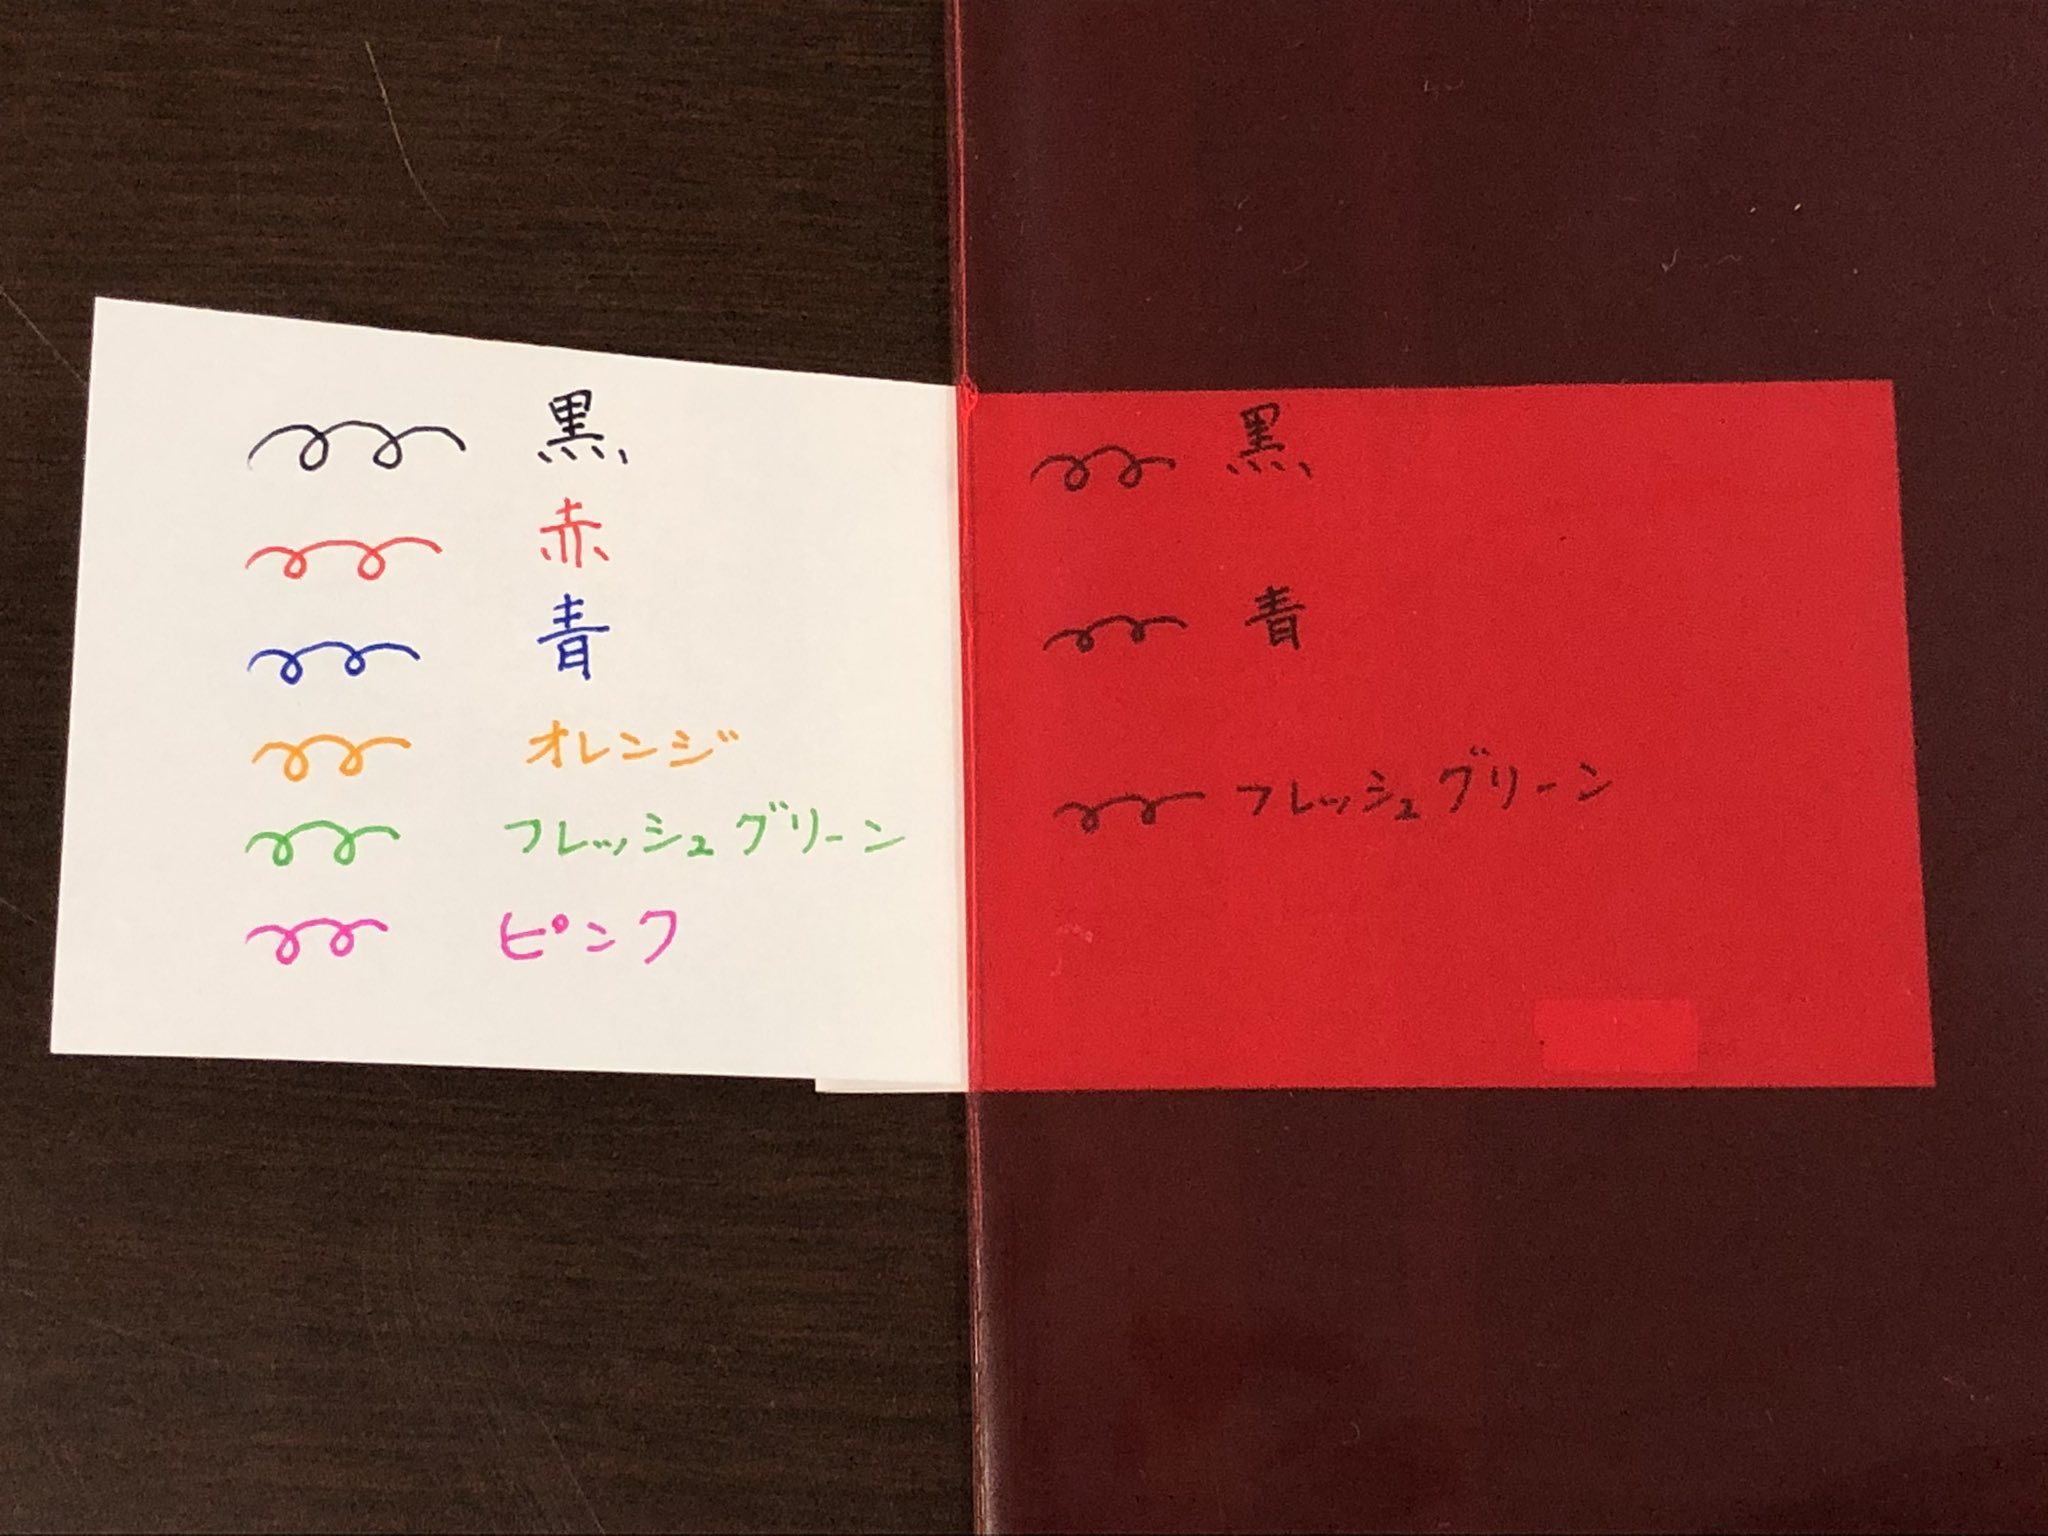 黒
赤
青
オレンジ
フレッシュグリーン
ピンク
黒
青
フレッシュグリーン